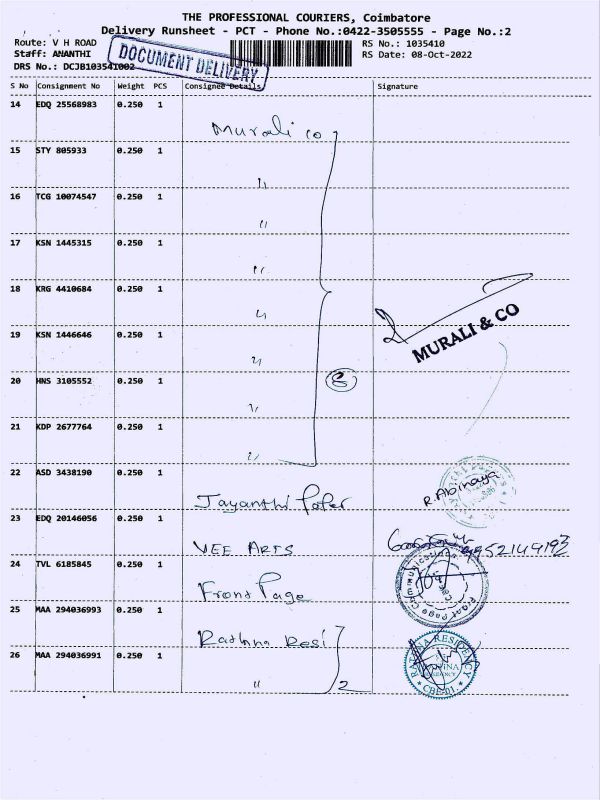 THE PROFESSIONAL COURIERS, Coimbatore
Delivery Runsheet - PCT - Phone No.:0422-3505555 - Page No.:2
Route: V H ROAD
RS No.: 1035410
Staff: ANANTHI
RS Date: 08-Oct-2022
DRS No.: DCJB103541002
DOCUMENT DELIVERY
S No Consignment No Weight PCS Consignee Details Signature
14 EDQ 25568983 0.250 1
Murali co
15 STY 805933 0.250 1
"
16 TCG 10074547 0.250 1
"
17 KSN 1445315 0.250 1
"
18 KRG 4410684 0.250 1
"
MURALI & CO
19 KSN 1446646 0.250 1
"
20 HNS 3105552 0.250 1
8
"
21 KDP 2677764 0.250 1
"
22 ASD 3438190 0.250 1
Jayanthi
R. Abinaya
23 EDQ 20146056 0.250 1
VEE ARTS
9952149193
24 TVL 6185845 0.250 1
Front Page
Front Page Communications
25 MAA 294036993 0.250 1
Rathna Resi
RATHNA RESIDENCY
CBE-01.
26 MAA 294036991 0.250 1
" 2